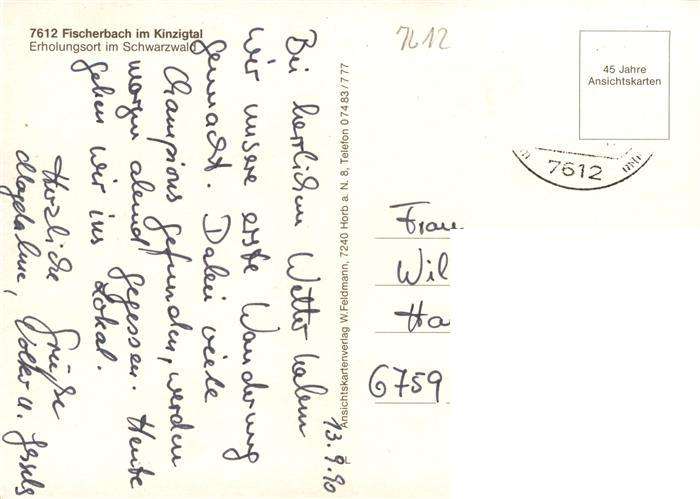 7612 Fischerbach im Kinzigtal
Erholungsort im Schwarzwald
13.9.90
Bei herrlichem Wetter haben
wir unsere erste Wanderung
gemacht. Dabei viele
Champions gefunden, werden
morgen abend gegessen. Heute
gehen wir ins Lokal.
Herzliche Grüße
Magdalene, Volker u.
Ansichtskartenverlag W.Feldmann, 7240 Horb a. N. 8, Telefon 07483/777
7612
45 Jahre
Ansichtskarten
7612
Frau
Wil
Ha
6759